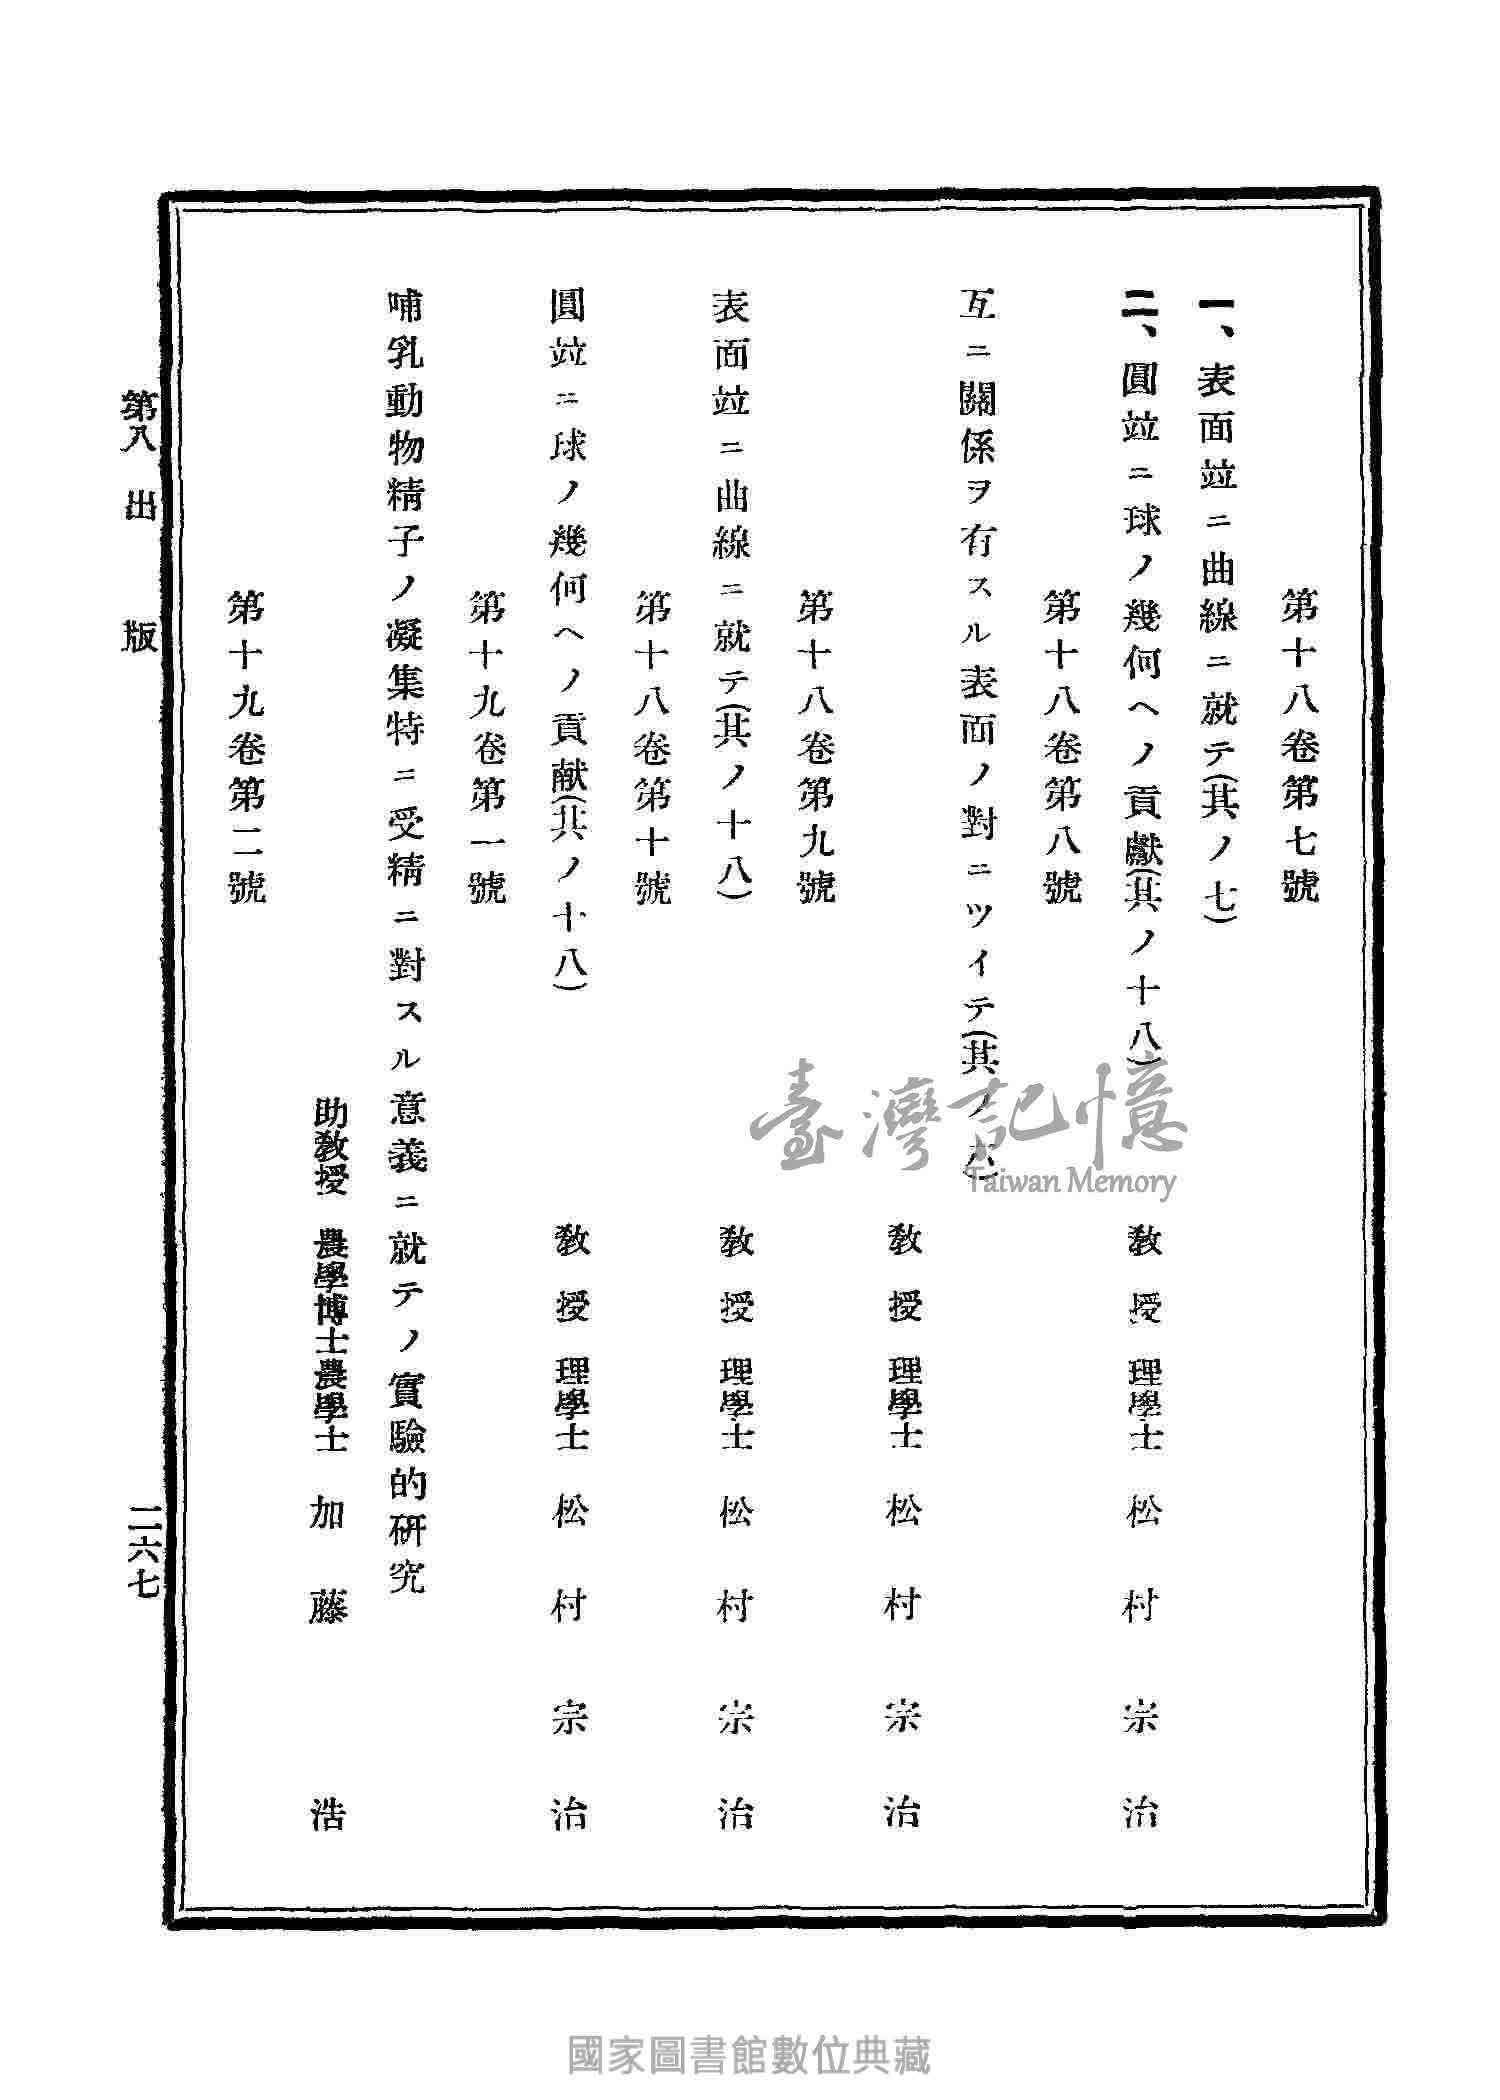 第十八卷第七號
一、表面竝ニ曲線ニ就テ(其ノ七)
二、圓竝ニ球ノ幾何ヘノ貢獻(其ノ十八)
教授 理學士 松村宗治
第十八卷第八號
互ニ關係ヲ有スル表面ノ對ニツイテ(其ノ六)
教授 理學士 松村宗治
第十八卷第九號
表面竝ニ曲線ニ就テ(其ノ十八)
教授 理學士 松村宗治
第十八卷第十號
圓竝ニ球ノ幾何ヘノ貢献(其ノ十八)
教授 理學士 松村宗治
第十九卷第一號
哺乳動物精子ノ凝集特ニ受精ニ對スル意義ニ就テノ實驗的硏究
助教授 農學博士農學士 加藤浩
第十九卷第二號
第八 出版
二六七
臺灣記憶
Taiwan Memory
國家圖書館數位典藏